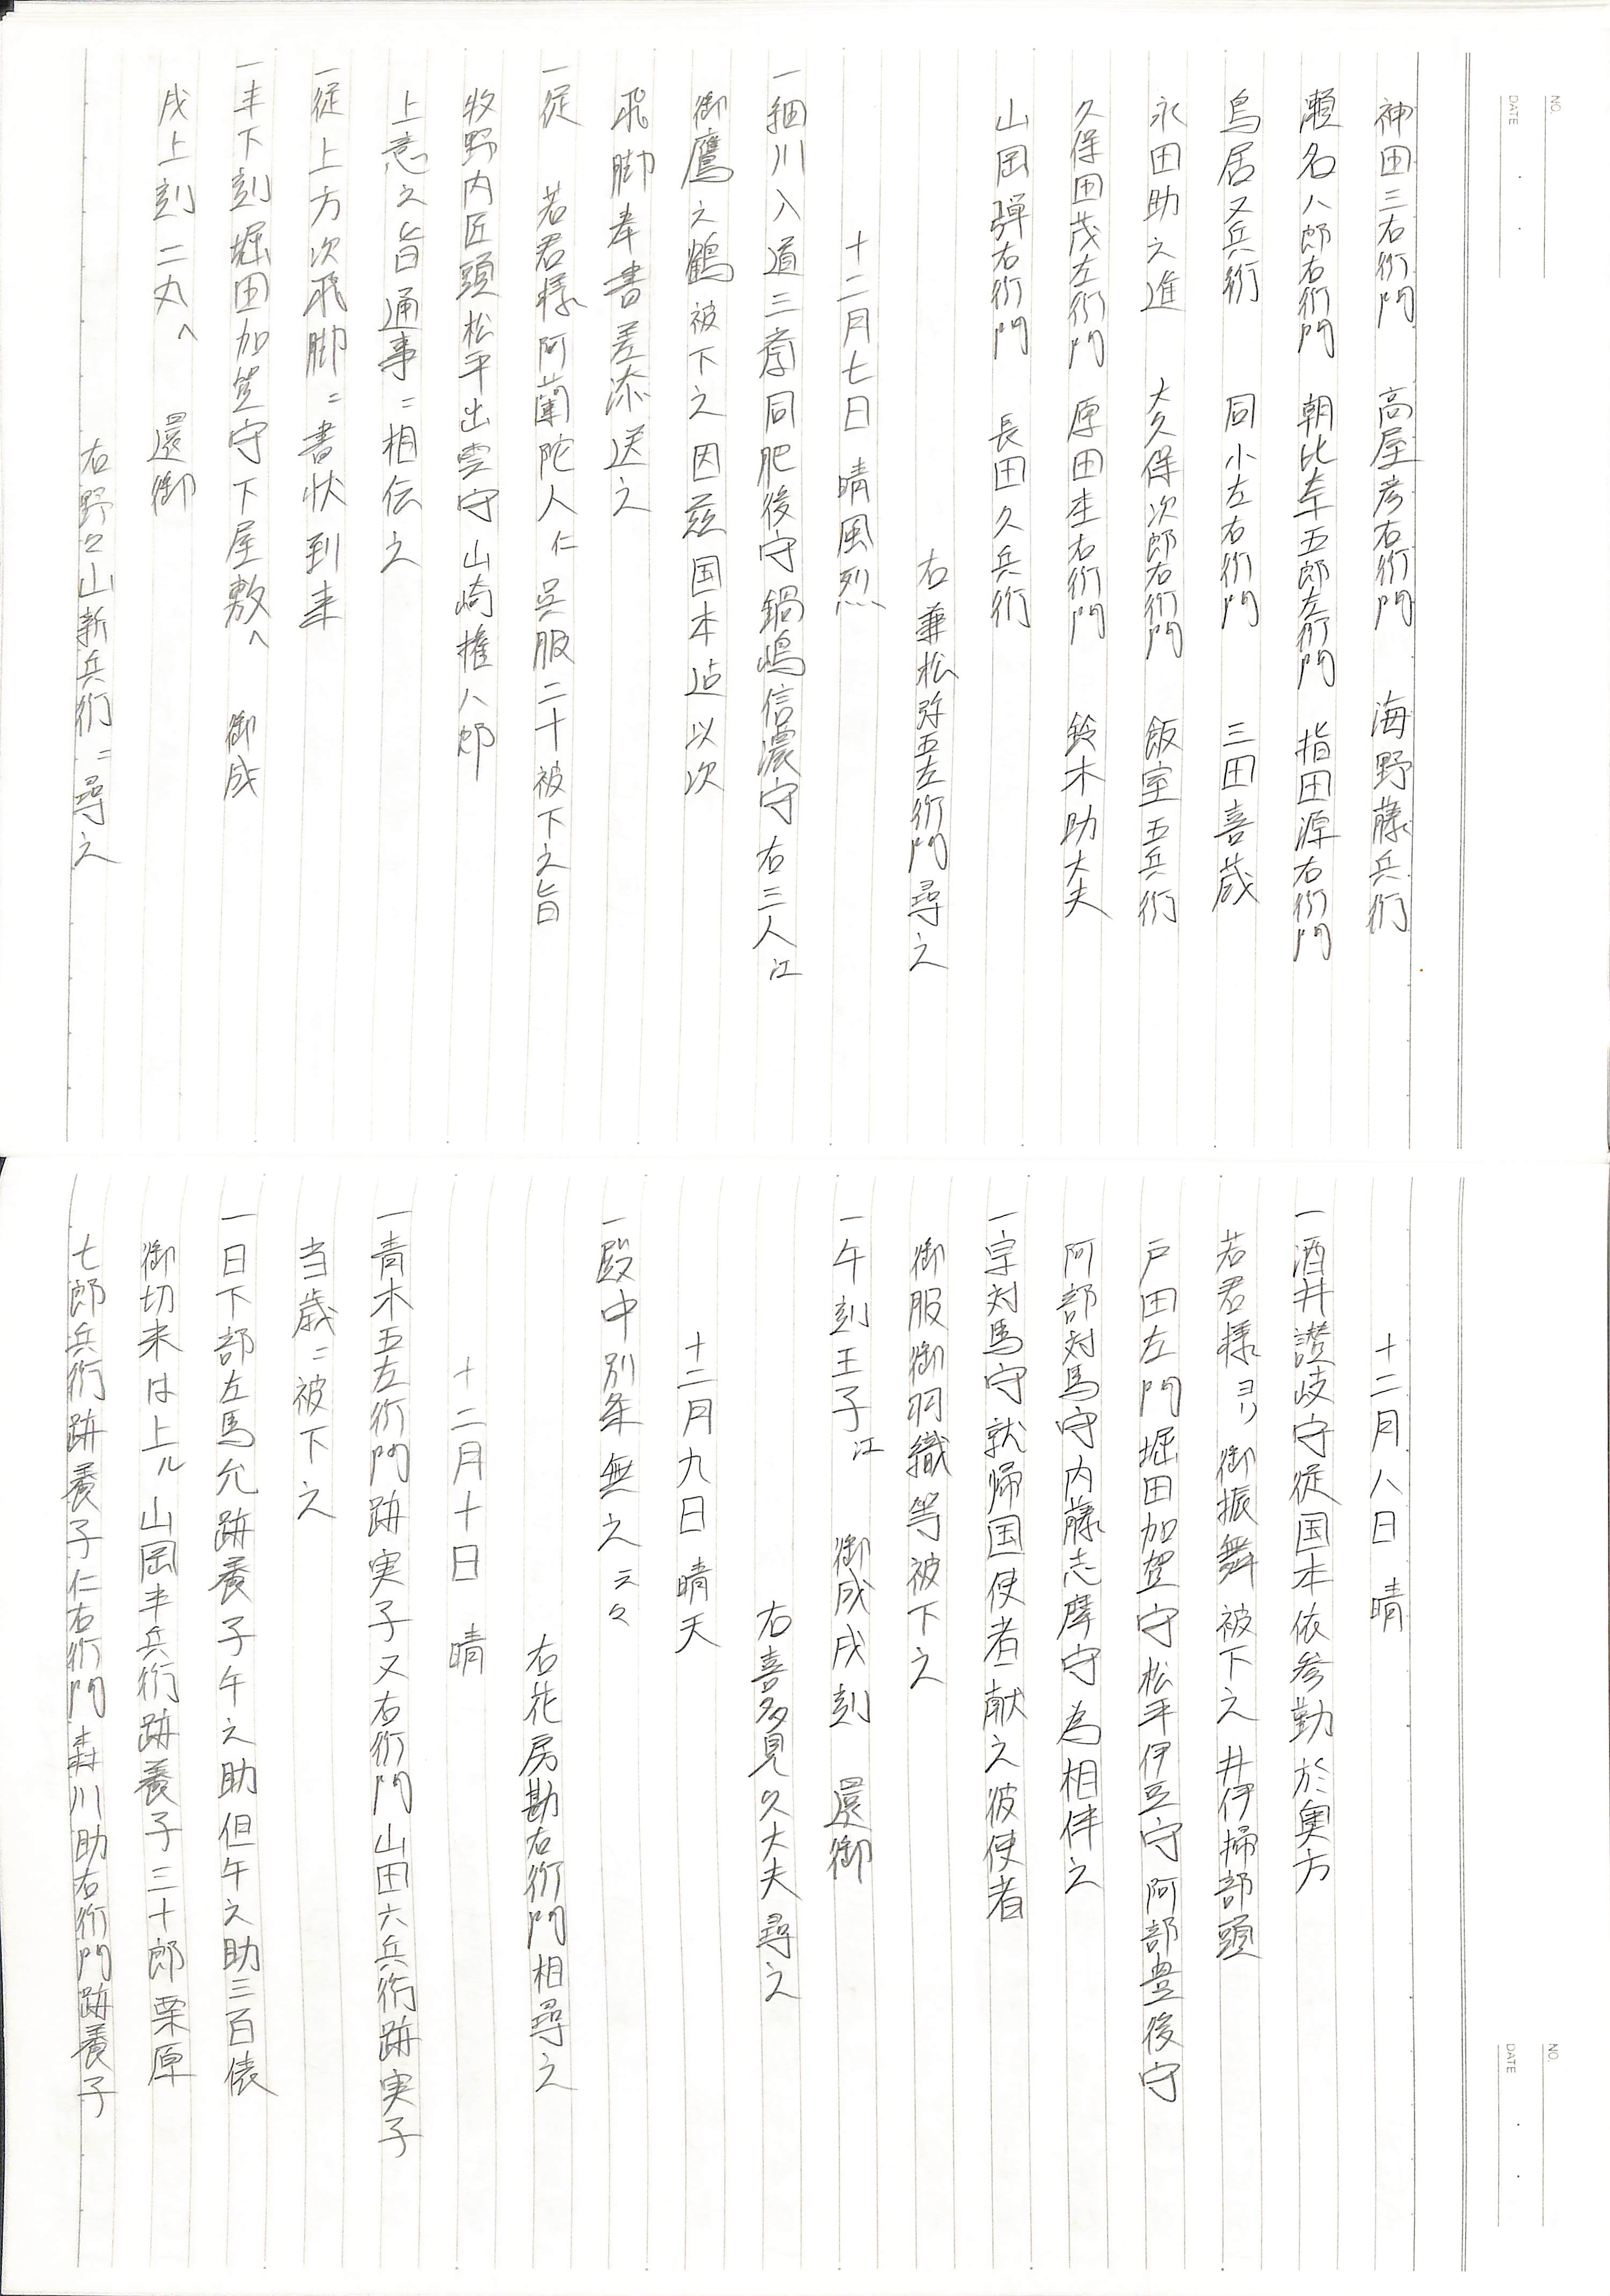 NO.
DATE
神田三右衛門　高屋彦右衛門　海野藤兵衛
瀬名八郎右衛門　朝比奈五郎左衛門　指田源右衛門
鳥居又兵衛　同小左右衛門　三田喜蔵
永田助之進　大久保次郎右衛門　飯室五兵衛
久保田茂左衛門　原田杢右衛門　鈴木助大夫
山岡弾右衛門　長田久兵衛
右兼松弥五左衛門尋之
十二月七日　晴風烈
一細川入道三斎同肥後守鍋嶋信濃守右三人江
御鷹之鶴被下之因茲国本迠以次
飛脚奉書差添送之
一従　若君様阿蘭陀人仁呉服二十被下之旨
牧野内匠頭松平出雲守山崎権八郎
上意之旨通事ニ相伝之
一従上方次飛脚ニ書状到来
一未下刻堀田加賀守下屋敷へ　御成
戌上刻二丸へ　還御
右野々山新兵衛ニ尋之
NO.
DATE
十二月八日　晴
一酒井讃岐守従国本依参勤於奥方
若君様ヨリ御振舞被下之井伊掃部頭
戸田左門堀田加賀守松平伊豆守阿部豊後守
阿部対馬守内藤志摩守為相伴之
一宗対馬守就帰国使者献之彼使者
御服御羽織等被下之
一午刻王子江　御成戌刻　還御
右喜多見久大夫尋之
十二月九日　晴天
一殿中別条無之云々
右花房勘右衛門相尋之
十二月十日　晴
一青木五左衛門跡実子又右衛門山田六兵衛跡実子
当歳ニ被下之
一日下部左馬允跡養子午之助但午之助三百俵
御切米は上ル山岡半兵衛跡養子三十郎栗原
七郎兵衛跡養子仁右衛門森川助右衛門跡養子